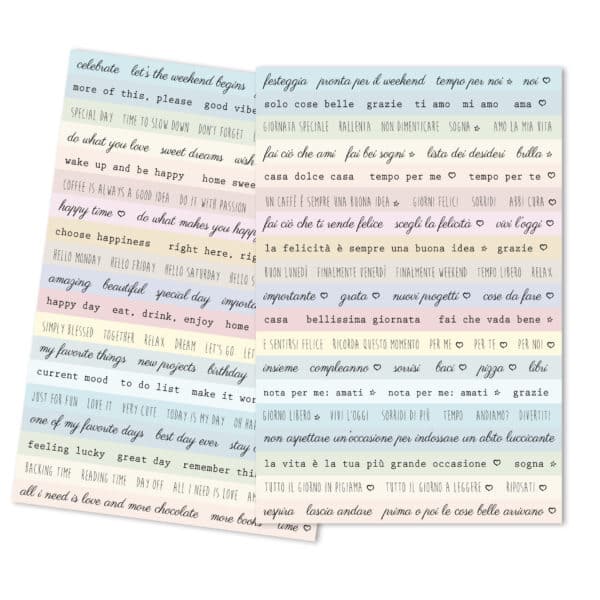 celebrate let's the weekend begins
more of this, please good vibe
SPECIAL DAY TIME TO SLOW DOWN DON'T FORGET
do what you love sweet dreams wish
wake up and be happy home swee
COFFEE IS ALWAYS A GOOD IDEA DO IT WITH PASSION
happy time ♡ do what makes you happ
choose happiness right here, rig
HELLO MONDAY HELLO FRIDAY HELLO SATURDAY HELLO S
amazing beautiful special day importa
happy day eat, drink, enjoy home
SIMPLY BLESSED TOGETHER RELAX DREAM LET'S GO LET
my favorite things new projects birthday
current mood to do list make it wor
JUST FOR FUN LOVE IT VERY CUTE TODAY IS MY DAY OH HA
one of my favorite days best day ever stay
feeling lucky great day remember thi
BACKING TIME READING TIME DAY OFF ALL I NEED IS LOVE AM
all i need is love and more chocolate more books time ♡
festeggia pronta per il weekend tempo per noi ☆ noi ♡
solo cose belle grazie ti amo mi amo ama ♡
GIORNATA SPECIALE RALLENTA NON DIMENTICARE SOGNA ☆ AMO LA MIA VITA
fai ciò che ami fai bei sogni ☆ lista dei desideri brilla ☆
casa dolce casa tempo per me ♡ tempo per te ♡
UN CAFFÈ È SEMPRE UNA BUONA IDEA ☆ GIORNI FELICI SORRIDI ABBI CURA ♡
fai ciò che ti rende felice scegli la felicità ♡ vivi l'oggi ♡
la felicità è sempre una buona idea ☆ grazie ♡
BUON LUNEDÌ FINALMENTE VENERDÌ FINALMENTE WEEKEND TEMPO LIBERO RELAX
importante ♡ grata ♡ nuovi progetti ♡ cose da fare ♡
casa bellissima giornata fai che vada bene ☆
E SENTIRSI FELICE RICORDA QUESTO MOMENTO PER ME ♡ PER TE ♡ PER NOI ♡
insieme compleanno ♡ sorrisi baci ♡ pizza ♡ libri
nota per me: amati ♡ nota per me: amati ☆ grazie
GIORNO LIBERO ☆ VIVI L'OGGI SORRIDI DI PIÙ TEMPO ANDIAMO? DIVERTITI!
non aspettare un'occasione per indossare un abito luccicante
la vita è la tua più grande occasione ♡ sogna ☆
TUTTO IL GIORNO IN PIGIAMA ♡ TUTTO IL GIORNO A LEGGERE ♡ RIPOSATI ♡
respira lascia andare prima o poi le cose belle arrivano ♡